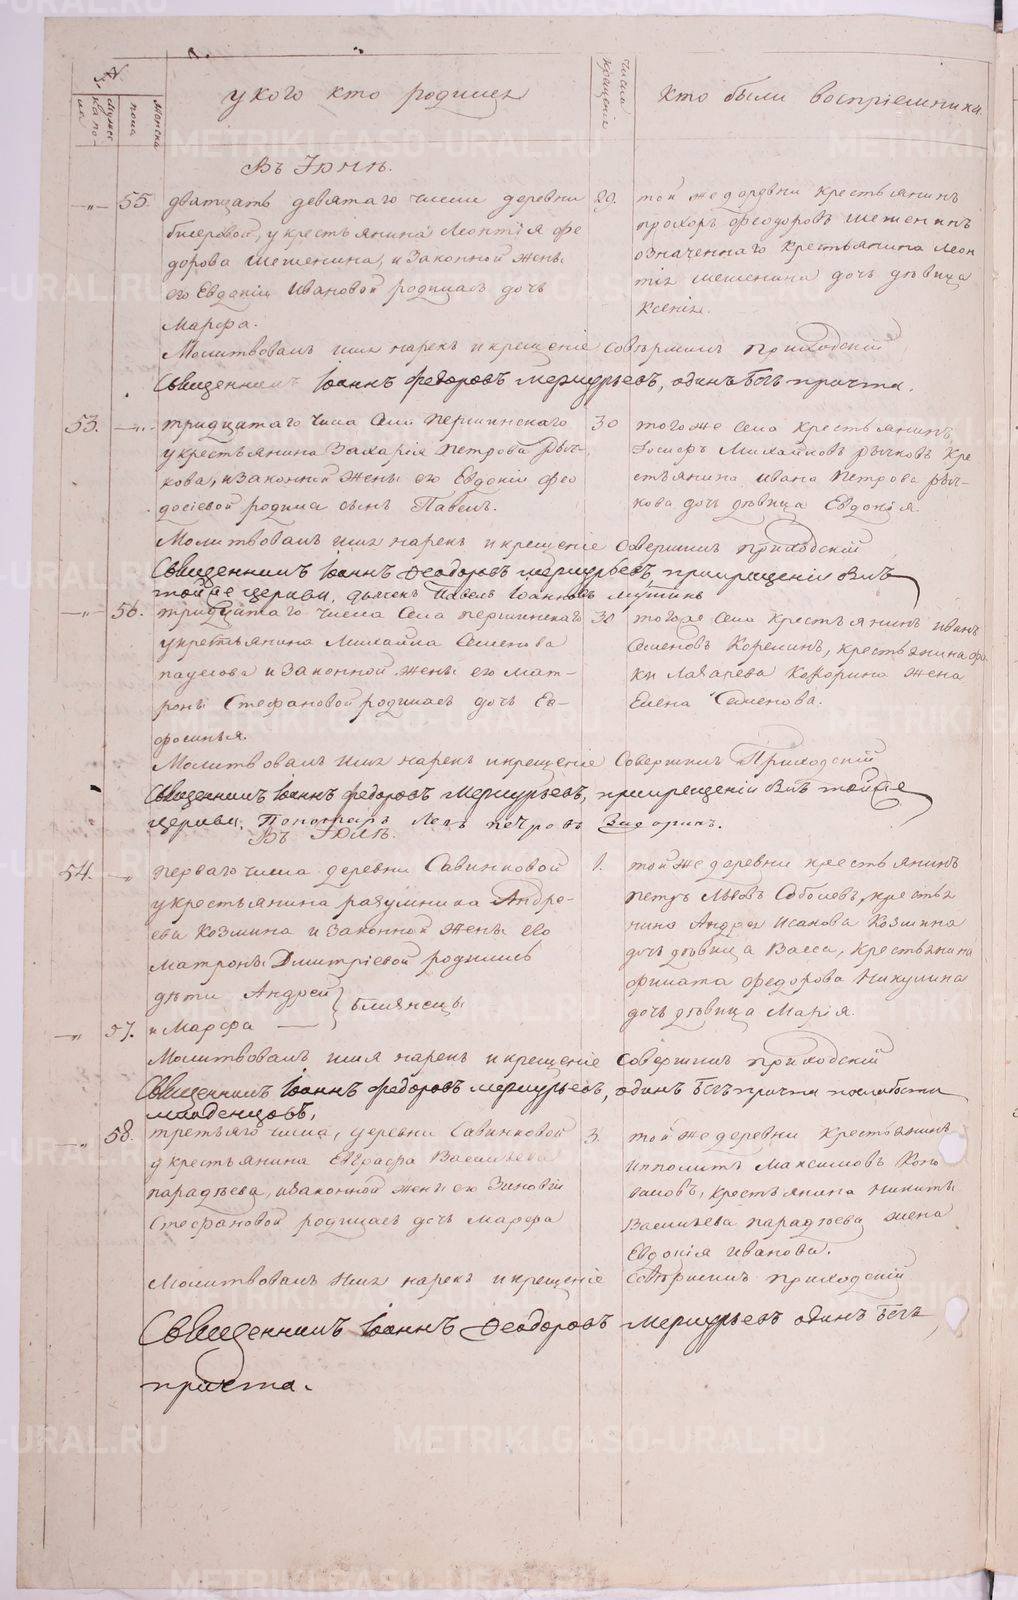 №
Мужес
ка по-
ла
Женска
пола
у кого кто родился
числа
крещенія
кто были воспріемники.
Въ Іюнѣ.
55. дватцать девятаго числа деревни
у крестьянина Леонтія Фе
дорова Шешенина, и законной жены
его Евдокіи Ивановой родилась дочь
Марфа.
29. той же деревни крестьянинъ
Прохоръ Феодоровъ Шешенинъ
означеннаго крестьянина Леон
тія Шешенина дочь дѣвица
Ксенія.
Молитвовалъ имя нарекъ и крещеніе совершилъ приходскій
Священникъ Іоаннъ Федоровъ Меркурьевъ, одинъ безъ причта.
53. тридцатаго числа села Першинскаго
у крестьянина Захарія Петрова Рыч-
кова, и законной жены его Евдокіи Фео
досіевой родился сынъ Павелъ.
30 того же села крестьянинъ
Іосифъ Михайловъ Рычковъ, кре
стьянина Ивана Петрова Рыч-
кова дочь дѣвица Евдокія.
Молитвовалъ имя нарекъ и крещеніе совершилъ приходскій
Священникъ Іоаннъ Феодоровъ Меркурьевъ, прикрещеніи былъ
тойже церкви, дьячекъ Павелъ Іоанновъ
56. тридцатаго числа села Першинскаго
у крестьянина Михайла Семенова
и законной жены его Мат-
роны Стефановой родилась дочь Ев-
фросинья.
30 тогоже села крестьянинъ Иванъ
Семеновъ Корелинъ, крестьянина
Лазарева жена
Елена Семенова.
Молитвовалъ имя нарекъ и крещеніе совершилъ Приходскій
Священникъ Іоаннъ Федоровъ Меркурьевъ, прикрещеніи былъ тойже
церкви, Пономарь Левъ Петровъ
Въ Іюлѣ.
54. перваго числа деревни Савинковой
у крестьянина Разумника Андре-
ева Козмина и законной жены его
Матроны Дмитріевой родились
дѣти Андрей } близнецы
57. и Марфа
1. той же деревни крестьянинъ
Петръ Львовъ Соболевъ, крестья
нина Андрея Исакова Козмина
дочь дѣвица Васса, крестьянина
Филата Федорова Никулина
дочь дѣвица Марія.
Молитвовалъ имя нарекъ и крещеніе совершилъ приходскій
Священникъ Іоаннъ Федоровъ Меркурьевъ, одинъ безъ причта послабости
младенцовъ.
58. третьяго числа, деревни Савинковой
у крестьянина Евграфа Васильева
Парадѣева, и законной жены его Зиновіи
Стефановой родилась дочь Марфа
3. той же деревни крестьянинъ
Ипполитъ Максимовъ Коно
валовъ, крестьянина Никиты
Васильева Парадѣева жена
Евдокія Иванова.
Молитвовалъ имя нарекъ и крещеніе совершилъ приходскій
Священникъ Іоаннъ Феодоровъ Меркурьевъ одинъ безъ
причта.
METRIKI.GASO-URAL.RU